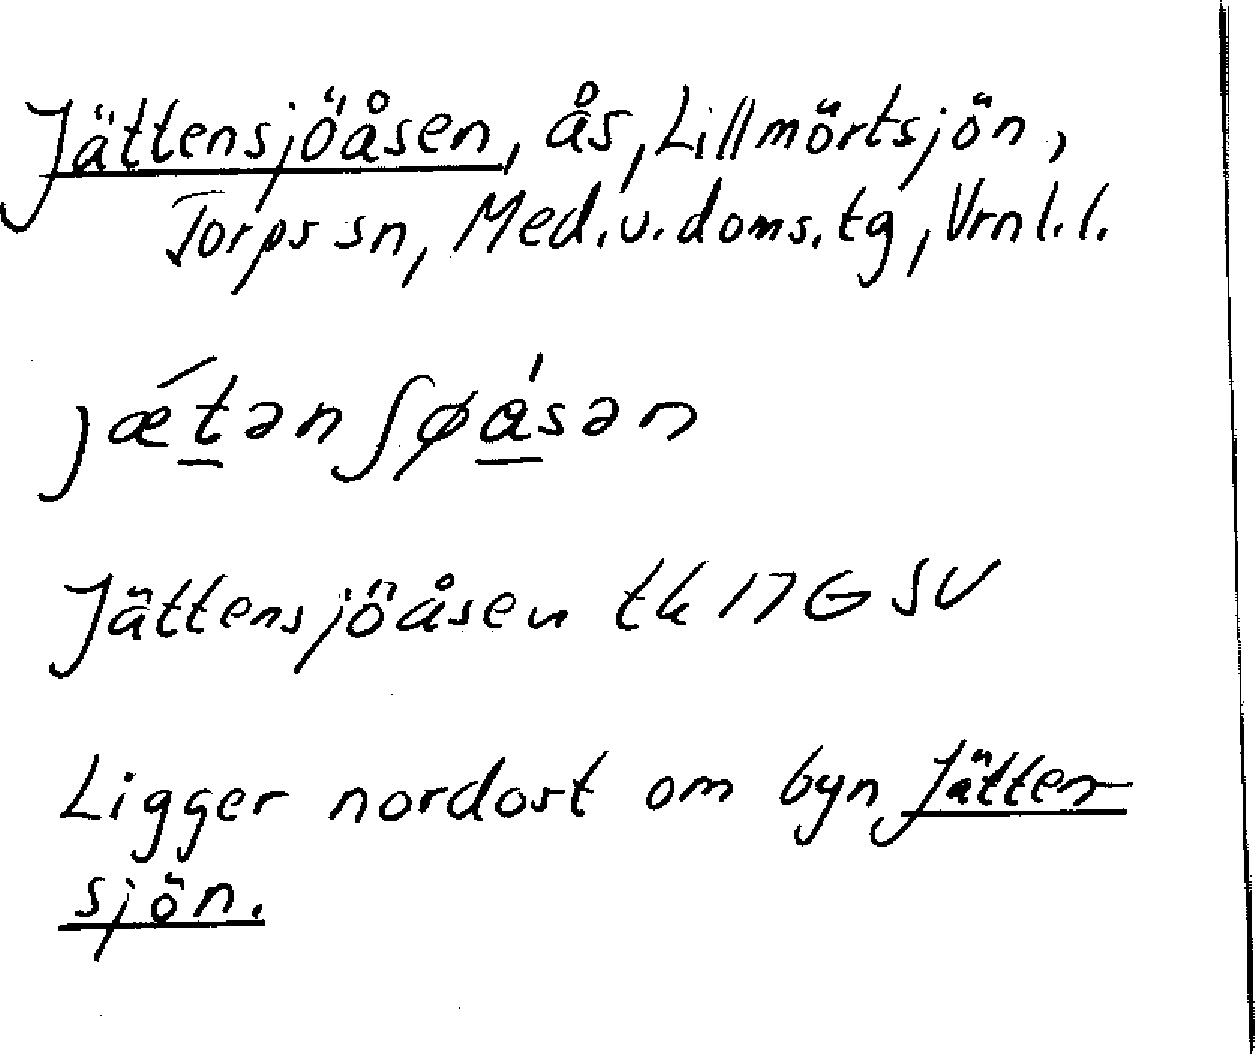 Jättensjöåsen, ås, Lillmörtsjön,
Torps sn, Med.v.doms.tg, Vrnl.l.
jǽtən ʃøásən
Jättensjöåsen tk 17G SV
Ligger nordost om byn Jätten-
sjön.